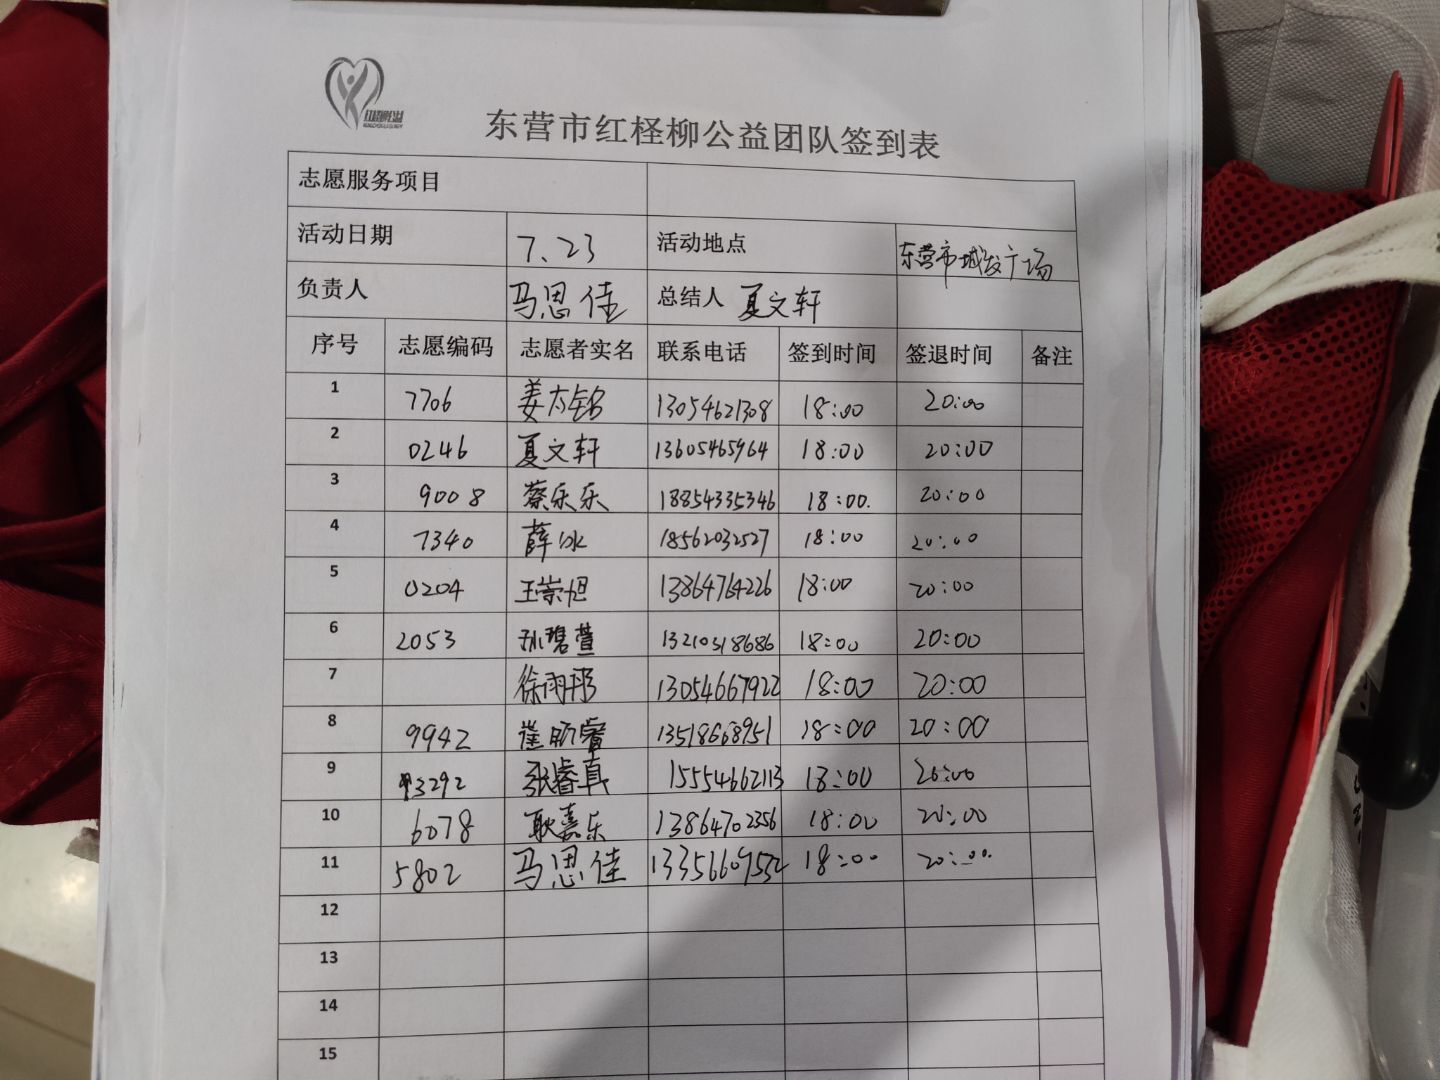 红柽柳公益
东营市红柽柳公益团队签到表
志愿服务项目
活动日期 7.23 活动地点 东营市城发广场
负责人 马思佳 总结人 夏文轩
序号 志愿编码 志愿者实名 联系电话 签到时间 签退时间 备注
1 7706 姜 铭 13054621308 18:00 20:00
2 0246 夏文轩 13605465964 18:00 20:00
3 9008 蔡乐乐 18854335346 18:00. 20:00
4 7340 薛冰 18562032527 18:00 20:00
5 0204 王崇旭 13864764226 18:00 20:00
6 2053 孙碧萱 13210318686 18:00 20:00
7 徐雨彤 13054667922 18:00 20:00
8 9942 崔昕睿 13518668951 18:00 20:00
9 3292 张睿真 15554662113 18:00 20:00
10 6078 耿嘉乐 13864702356 18:00 20:00
11 5802 马思佳 13356609532 18:00 20:00
12
13
14
15